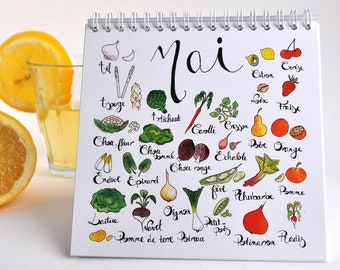 Mai
Ail
Citron
Cerise
Asperge
Artichaut
Carotte
Cresson
Fraise
Chou-fleur
Chou pommé
Chou rouge
Échalote
Poire
Orange
Endive
Épinard
Fève
Rhubarbe
Pomme
Laitue
Navet
Oignon
Petit-pois
Pomme de terre
Poireau
Potimarron
Radis